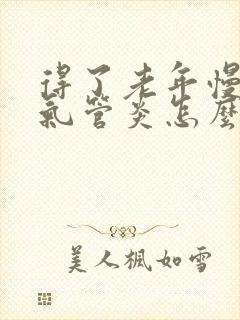 得了老年慢
氣管炎怎麼
美人楓如雪